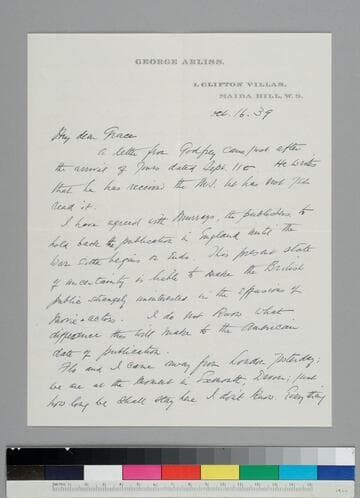 GEORGE ARLISS.
1, CLIFTON VILLAS,
MAIDA HILL, W. 9.
Oct. 16. 39
My dear Grace
A letter from Godfrey came just after
the arrival of yours dated Sept. 11th. He writes
that he has received the M.S. he has not yet
read it.
I have agreed with Murrays, the publishers to
hold back the publication in England until the
war either begins or ends. This present state
of uncertainty is liable to make the British
public strangely uninterested in the effusions of
movie-actors. I do not know what
difference this will make to the American
date of publication.
Flo and I came away from London yesterday;
we are at the moment in Devon; just
how long we shall stay here I don't know. Everything